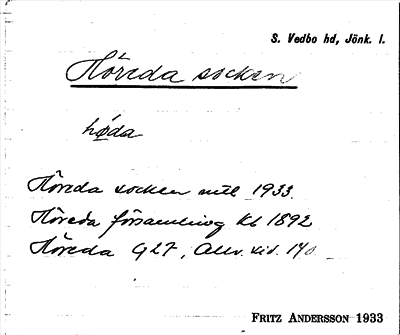 S. Vedbo hd, Jönk. l.
Höreda socken
høda
Höreda socken mtl 1933.
Höreda församling Kb 1892
Höreda G 27, Allv. 140
FRITZ ANDERSSON 1933